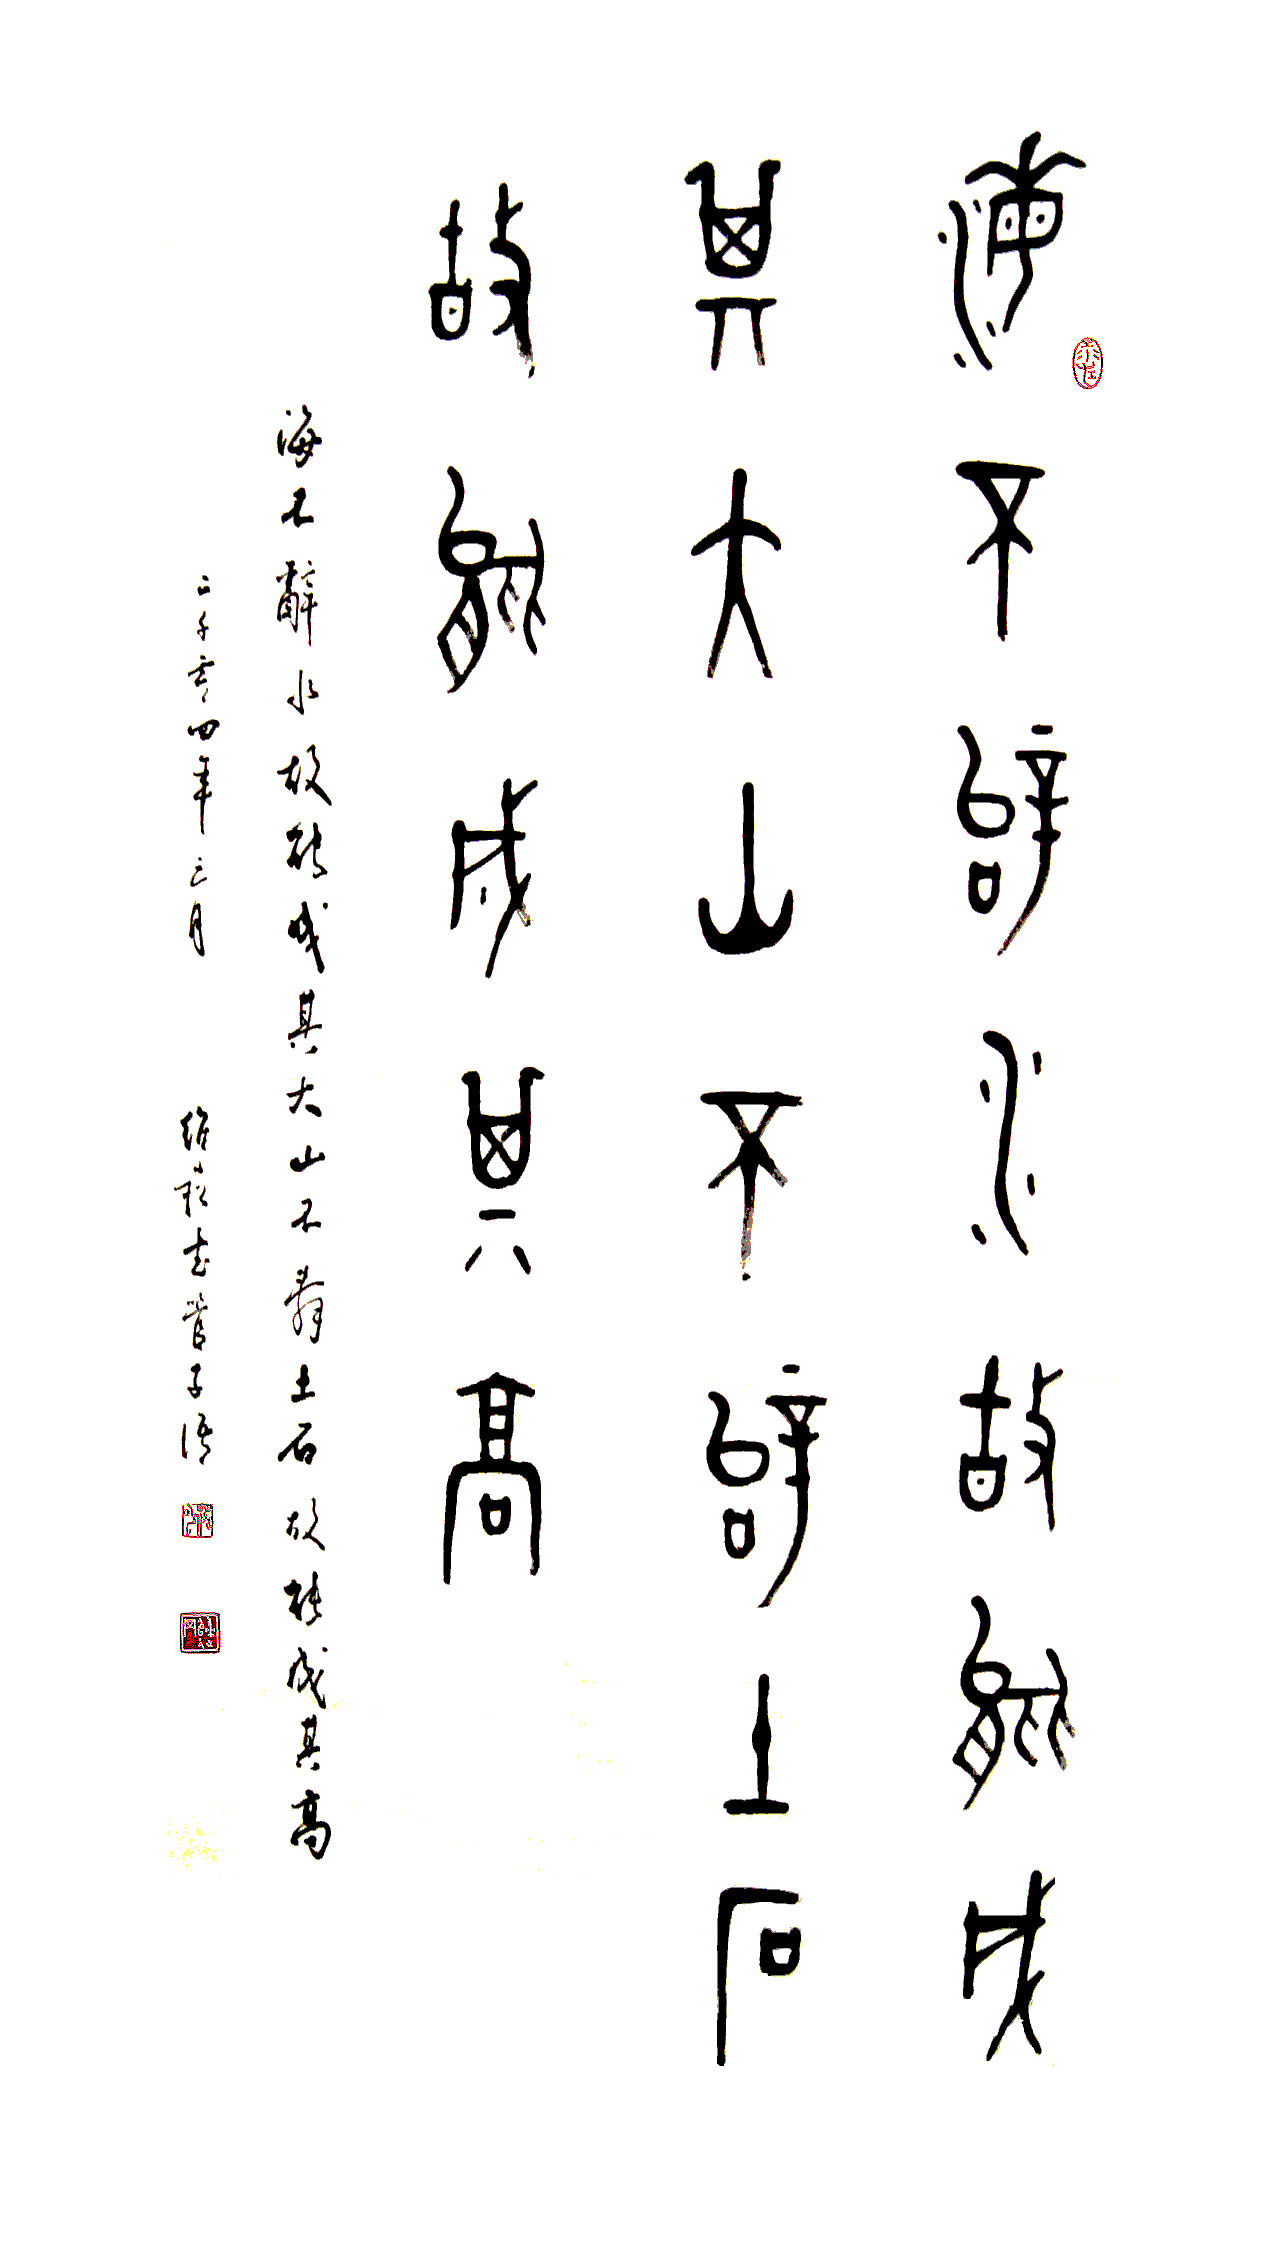 海不辭水故能成
其大山不辭土石
故能成其高
海不辭水故能成其大山不辞土石故能成其高
二千零四年三月 書管子语